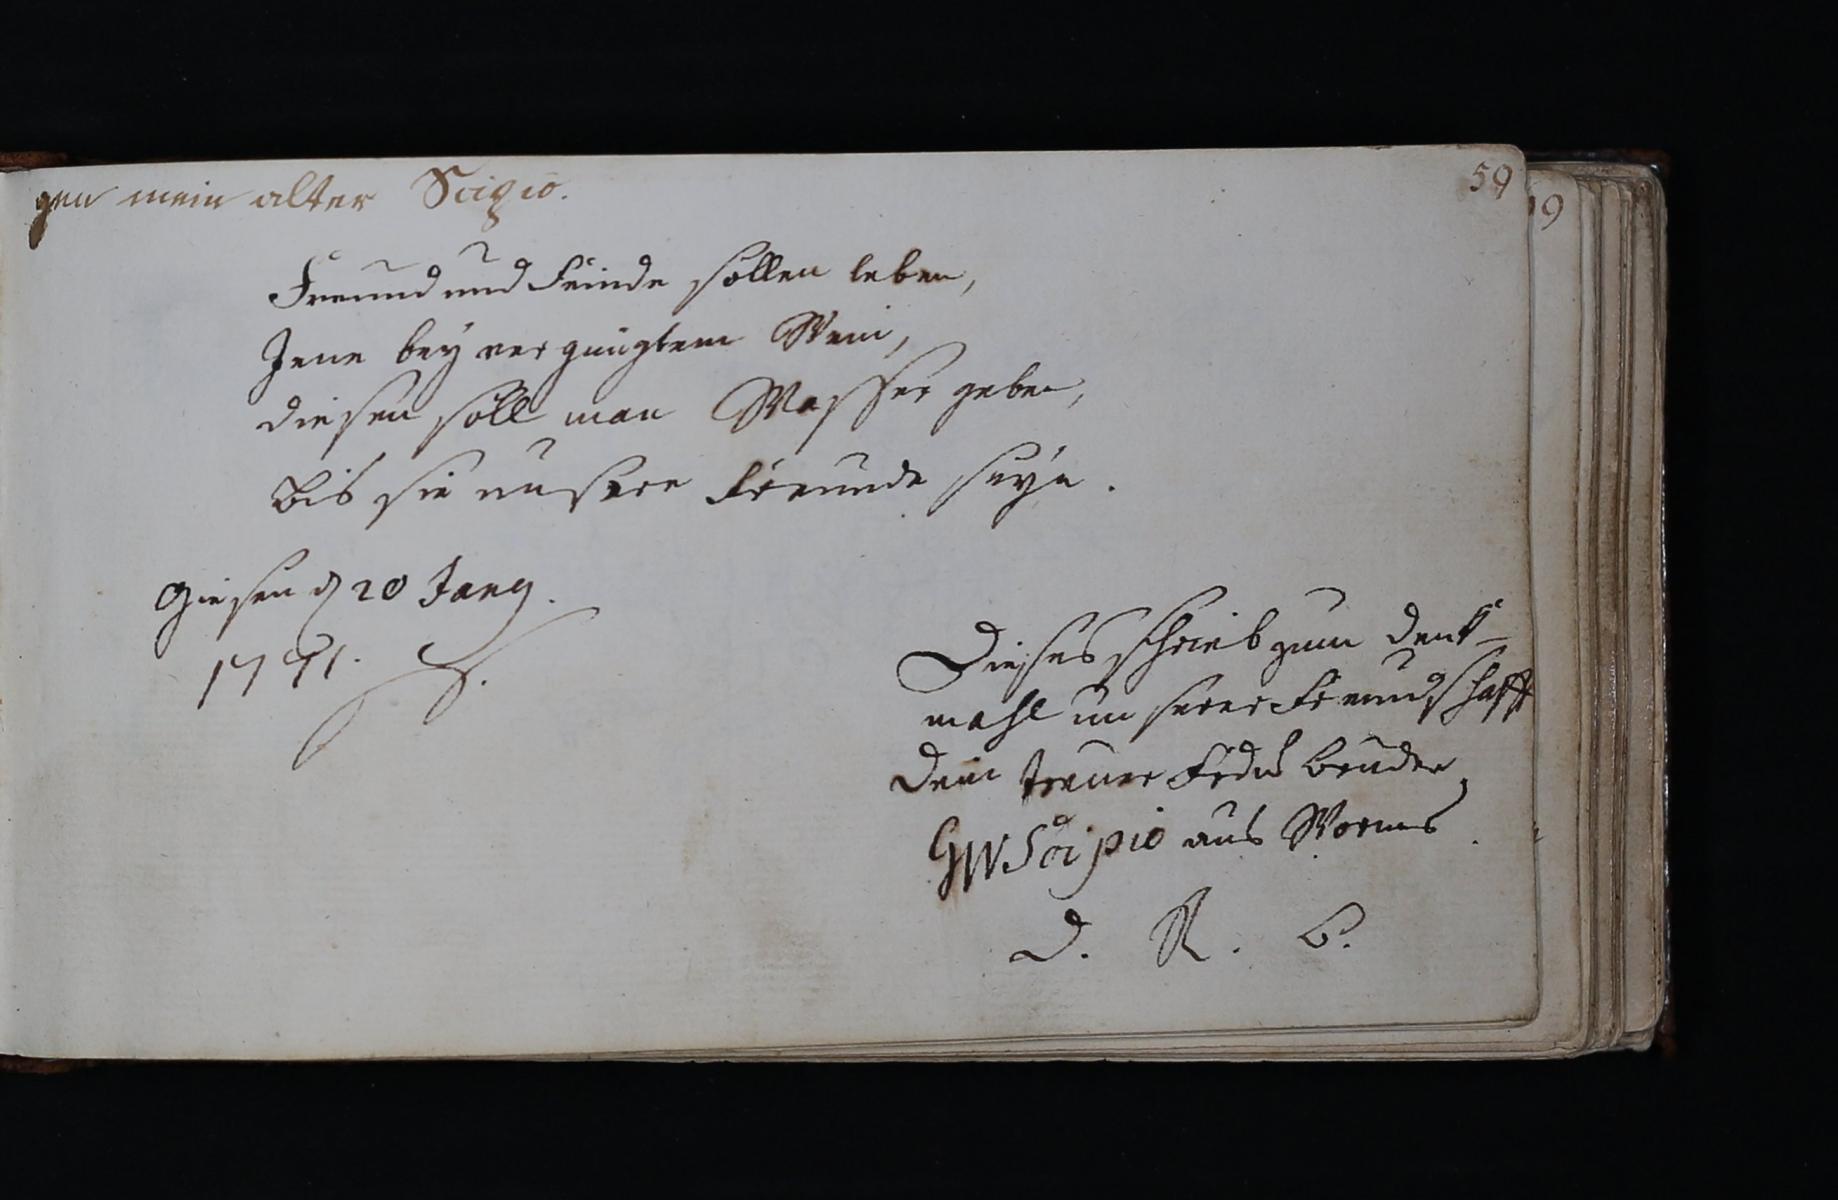 gen mein alter Scipio.
59
Freund und Feinde sollen leben,
Jene bey vergnügtem Wein,
diesen soll man Wasser geben,
bis sie unsere Freunde seyn.
Giesen d 20 Jany.
1791. S.
Dieses schrieb zum denk-
mahl unserer Freundschafft
Dein treuer Bruder
GWScipio aus Worms.
D. R. C.